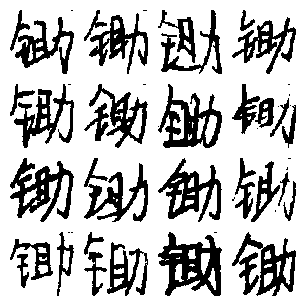 锄锄锄锄
锄锄锄锄
锄锄锄锄
锄锄锄锄